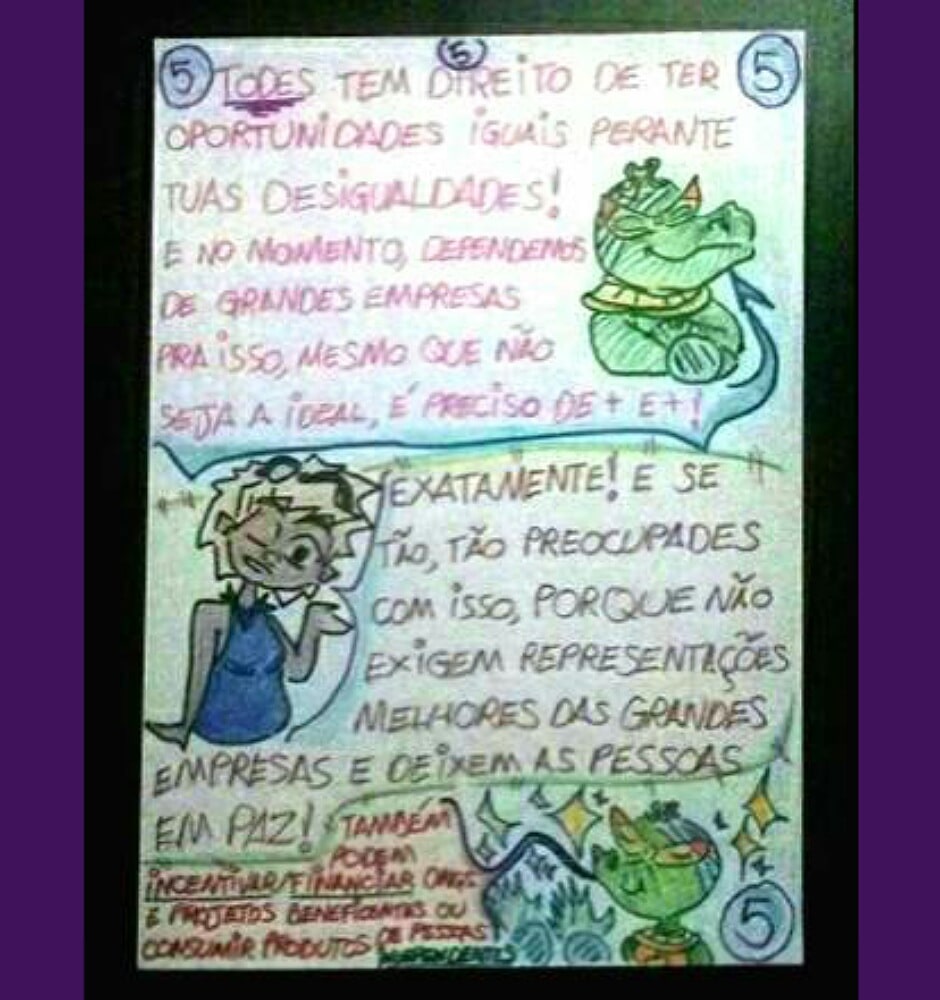 5 5 5
TODES TEM DIREITO DE TER
OPORTUNIDADES IGUAIS PERANTE
TUAS DESIGUALDADES!
E NO MOMENTO, DEPENDEMOS
DE GRANDES EMPRESAS
PRA ISSO, MESMO QUE NÃO
SEJA A IDEAL, É PRECISO DE + E +!
EXATAMENTE! E SE
TÃO, TÃO PREOCUPADES
COM ISSO, PORQUE NÃO
EXIGEM REPRESENTAÇÕES
MELHORES DAS GRANDES
EMPRESAS E DEIXEM AS PESSOAS
EM PAZ!
TAMBÉM
PODEM
INCENTIVAR/FINANCIAR ONGS
E PROJETOS BENEFICENTES OU
CONSUMIR PRODUTOS DE PESSOAS
INDEPENDENTES
5